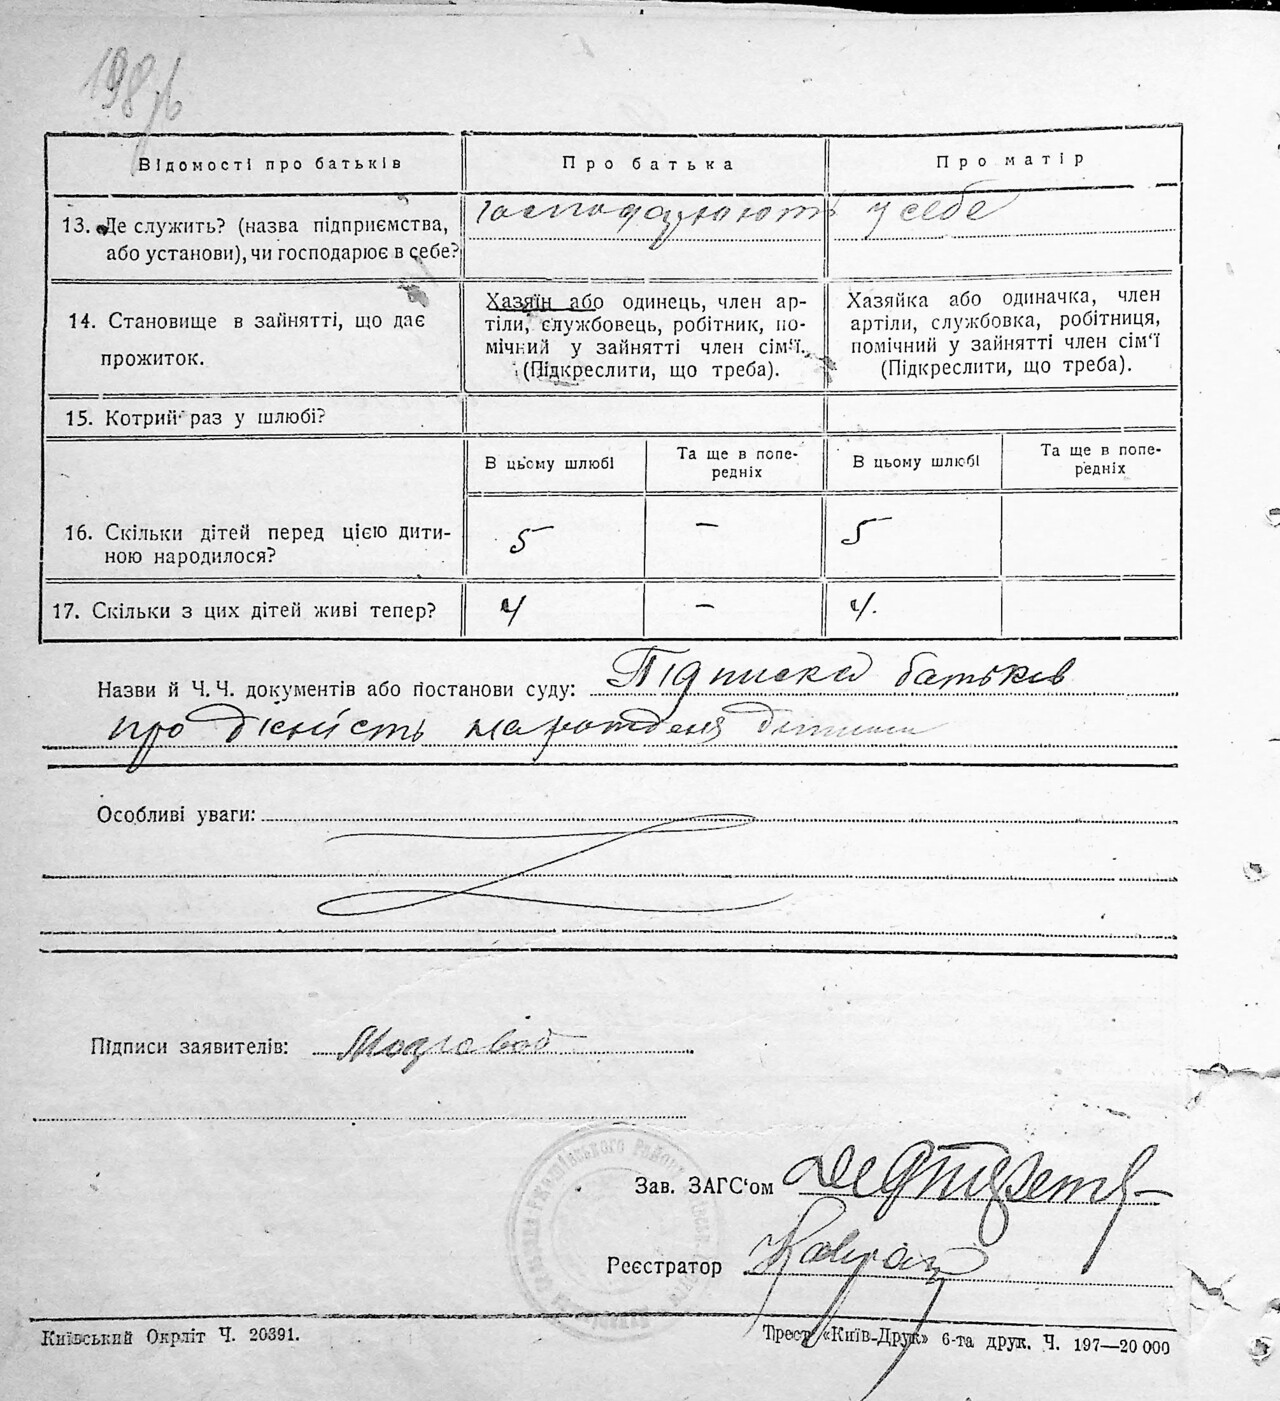 Відомості про батьків
Про батька
Про матір
13. Де служить? (назва підприємства,
або установи), чи господарює в себе?
Господарюють у себе
14. Становище в зайнятті, що дає
прожиток.
Хазяїн або одинець, член ар-
тіли, службовець, робітник, по-
мічний у зайнятті член сім‘ї.
(Підкреслити, що треба).
Хазяйка або одиначка, член
артіли, службовка, робітниця,
помічний у зайнятті член сім‘ї
(Підкреслити, що треба).
15. Котрий раз у шлюбі?
В цьому шлюбі
Та ще в попе-
редніх
В цьому шлюбі
Та ще в попе-
редніх
16. Скільки дітей перед цією дити-
ною народилося?
5 — 5
17. Скільки з цих дітей живі тепер?
4 — 4.
Назви й Ч. Ч. документів або постанови суду: Підписка батьків
про дійсність народження дитини
Особливі уваги:
Підписи заявителів:
Зав. ЗАГС‘ом
Реєстратор
Київський Окрліт Ч. 20391.
Трест «Київ-Друк» 6-та друк. Ч. 197—20 000